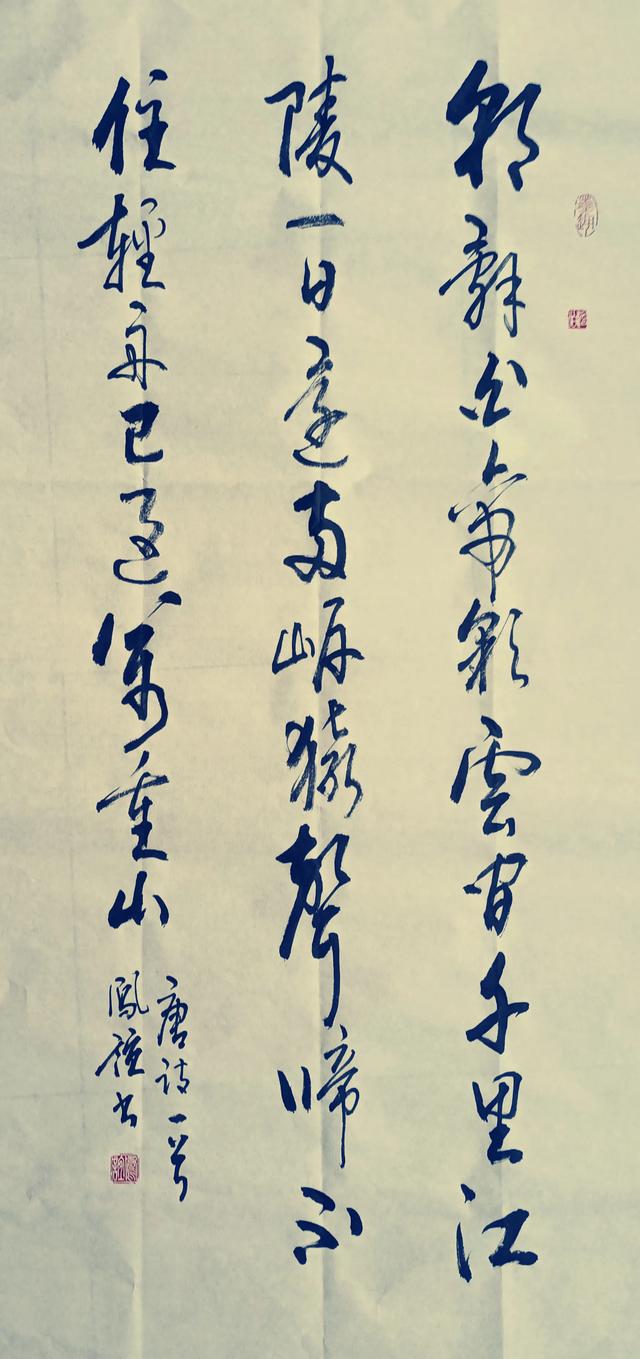 朝辭白帝彩雲間千里江
陵一日還兩岸猿聲啼不
住輕舟已過萬重山
唐詩一首
鳳雄書